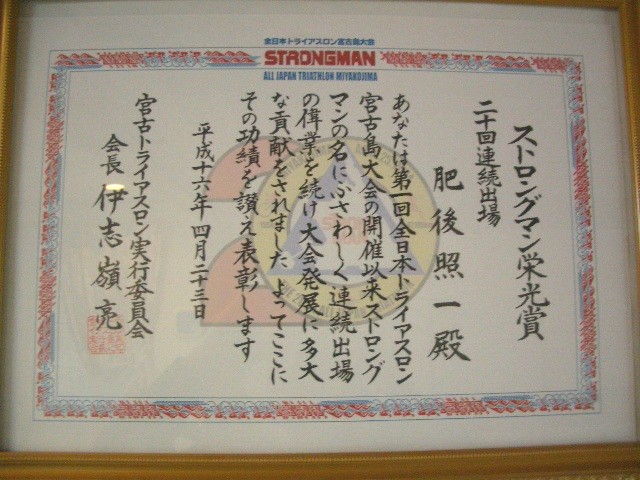 全日本トライアスロン宮古島大会
STRONGMAN
ALL JAPAN TRIATHLON MIYAKOJIMA
ストロングマン栄光賞
二十回連続出場
肥後照一殿
あなたは第一回全日本トライアスロン
宮古島大会の開催以来ストロング
マンの名にふさわしく連続出場
の偉業を続け大会発展に多大
な貢献をされました よってここに
その功績を讃え表彰します
平成十六年四月二十三日
宮古トライアスロン実行委員会
会長 伊志嶺亮